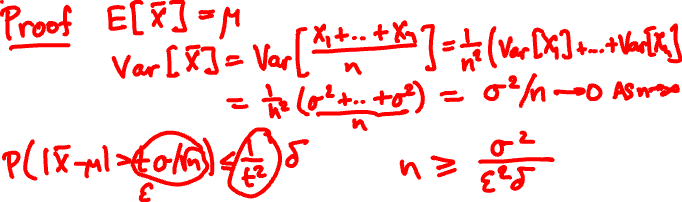 Proof E[X̄] = μ
Var[X̄] = Var[(X₁+...+Xₙ)/n] = 1/n² (Var[X₁]+...+Var[Xₙ])
= 1/n² (σ²+...+σ²) = σ²/n → 0 As n→∞
n
P(|X̄-μ| > tσ/√n) ≤ 1/t² δ n ≥ σ²/ε²δ
ε